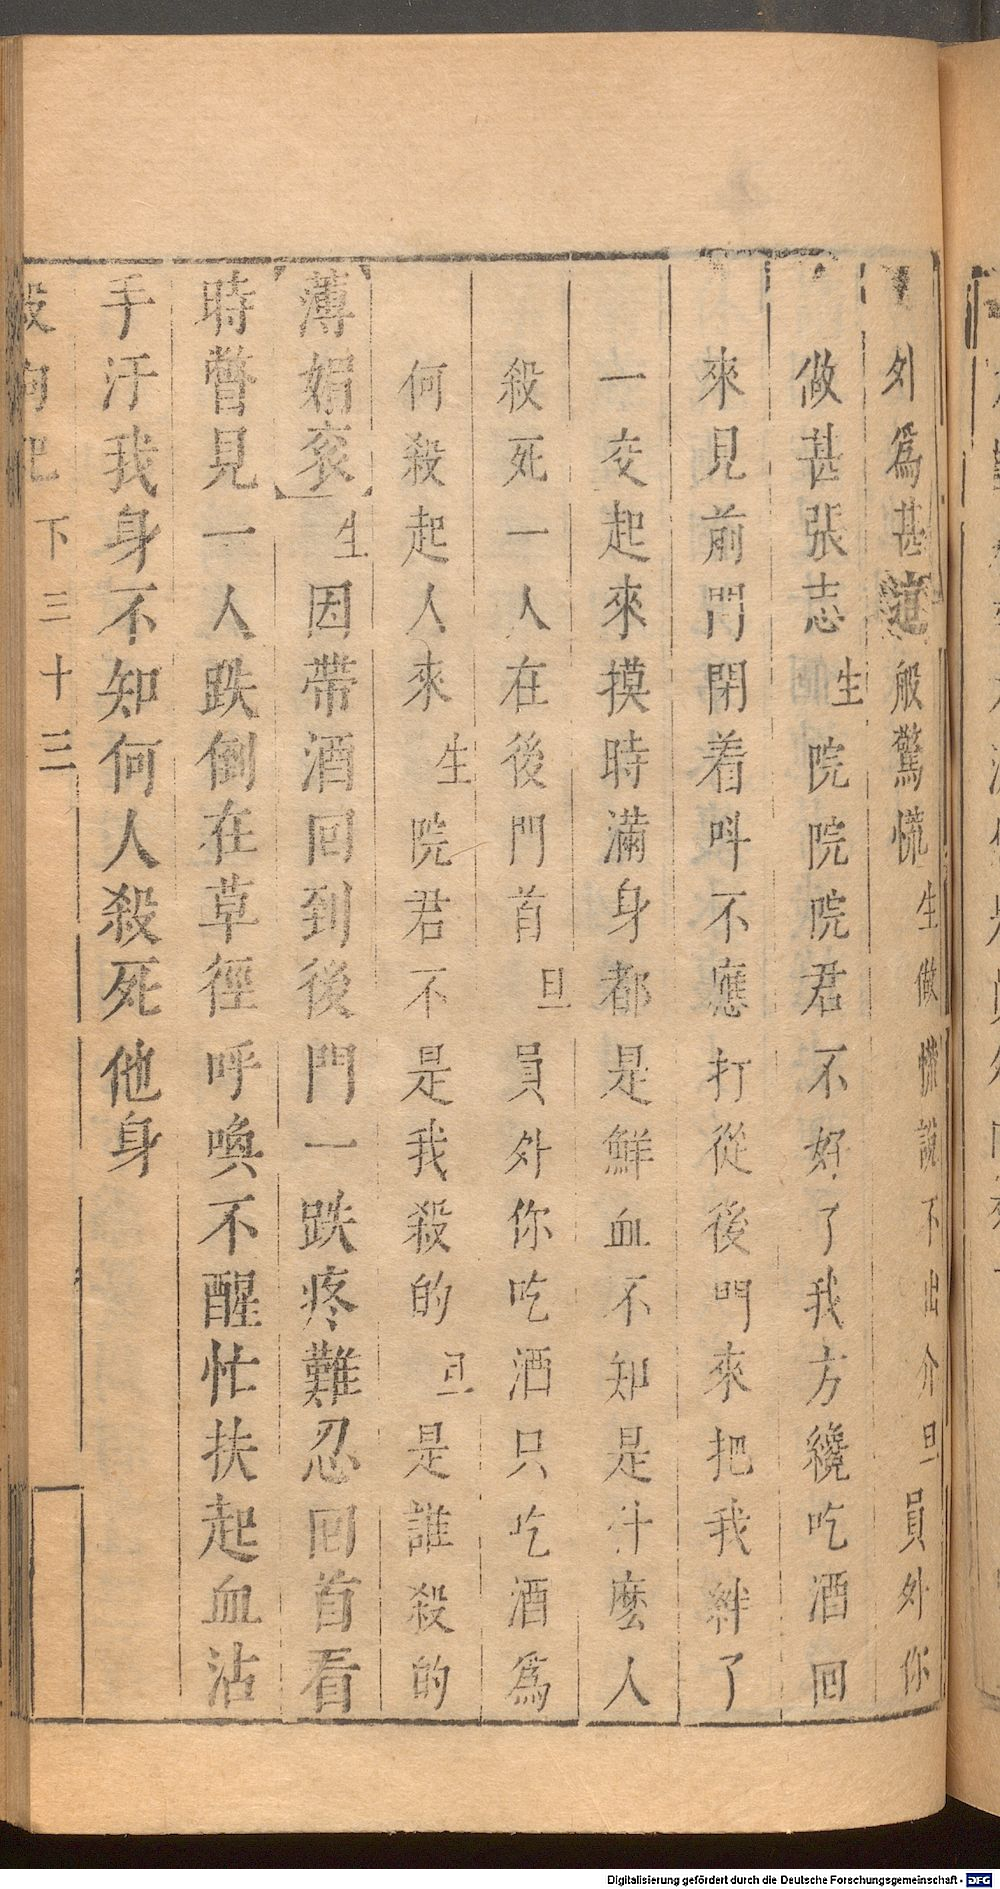 外爲甚這般驚慌生做慌說不出介旦員外你
做甚張志生院院院君不好了我方纔吃酒回
來見前門閉着呌不應打從後門來把我絆了
一交起來摸時滿身都是鮮血不知是什麽人
殺死一人在後門首旦員外你吃酒只吃酒爲
何殺起人來生院君不是我殺的旦是誰殺的
薄媚衮生因帶酒回到後門一跌疼難忍回首看
時瞥見一人跌倒在草徑呼喚不醒忙扶起血沾
手汙我身不知何人殺死他身
殺狗記 下 三十三
Digitalisierung gefördert durch die Deutsche Forschungsgemeinschaft - DFG